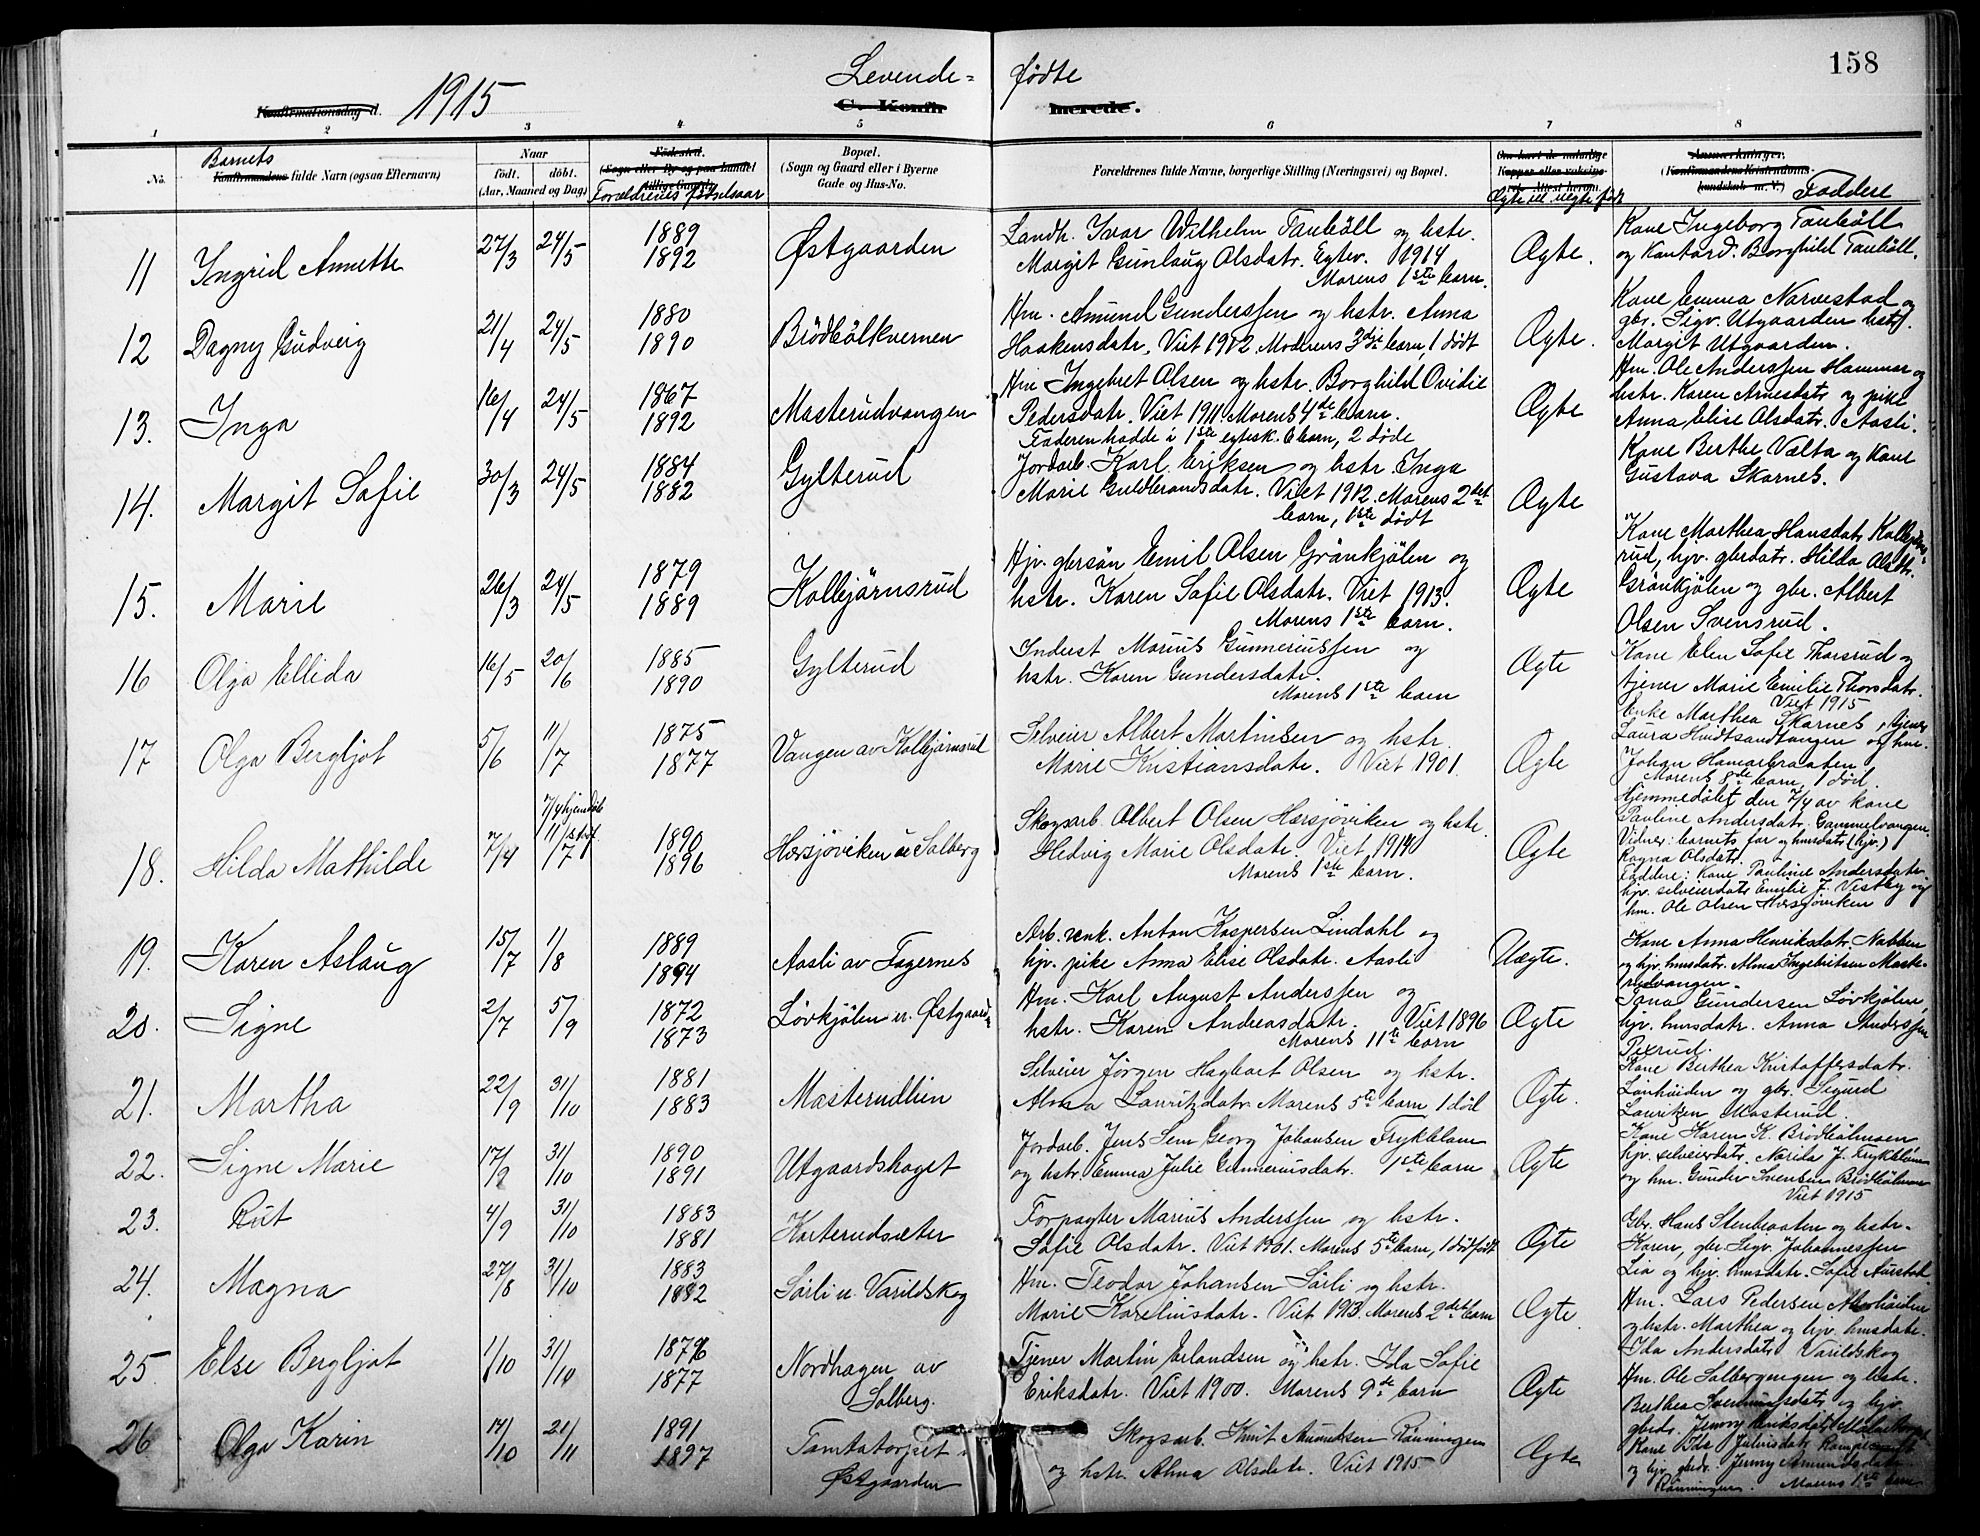 158
Levende- fødte
Konfirmationsdag d. 1915 C. Konfirmerede.
1 2 3 4 5 6 7 8
No.
Barnets
Konfirmandens fulde Navn (ogsaa Efternavn)
Naar
født. døbt.
(Aar, Maaned og Dag)
Fødested.
(Sogn eller By og paa Landet
tillige Gaard)
Forældrenes fødselsaar
Bopæl.
(Sogn og Gaard eller i Byerne
Gade og Hus-No.
Forældrenes fulde Navne, borgerlige Stilling (Næringsvei) og Bopæl.
Om havt de naturlige
Kopper eller vaksineret
Ægte ell. uægte født
Anmærkninger.
(Konfirmandens Kristendomskundskab m. V.)
Faddere
11 Ingrid Annette 27/3 24/5 1889 1892 Østgaarden
Landh. Ivar Wilhelm Taubøll og hstr.
Margit Gunlaug Olsdatr. Egtev. 1914
Morens 1ste barn.
Ægte.
Kone Ingeborg Taubøll
og Kontord. Borghild Taubøll.
12 Dagny Gudveig 21/4 24/5 1880 1890 Brödbölkvernen
Hm. Amund Gunderssen og hstr. Anna
Haakensdatr. Viet 1912. Moderens 3die barn, 1 dødt
Ægte.
Kone Emma Narvestad og
gbr. Sigv. Utgaarden hstr.
Margit Utgaarden.
13. Inga 16/4 24/5 1867 1892 Masterudvangen
Hm Ingebret Olsen og hstr. Borghild Ovidie
Pedersdatr. Viet 1911. Morens 4de barn.
Faderen hadde i 1ste egtesk. 6 barn, 2 døde
Ægte
Hm. Ole Anderssen Hammer og
hstr. Karen Arnesdatr og pike
Anna Elise Olsdatr. Aasli.
14. Margit Sofie 30/3 24/5 1884 1882 Gylterud
Jordarb. Karl Eriksen og hstr Inga
Marie Guldbrandsdatr. Viet 1912. Morens 2det
barn, 1ste dødt
Ægte
Kone Berthe Valta og Kone
Gustava Skarnes.
15. Marie 26/3 24/5 1879 1889 Kolbjørnsrud
Hjv. gbrsøn Emil Olsen Grönkjölen og
hstr. Karen Sofie Olsdatr. Viet 1913.
Morens 1ste barn.
Ægte
Kone Marthea Hansdatr Kolbjørnsrud,
hjv. gbrdatr. Hilda Olsdtr.
Grönkjölen og gbr. Albert
Olsen Svensrud.
16 Olga Ellida 16/5 20/6 1885 1890 Gylterud
Inderst Marius Gunneriussen og
hstr. Karen Gundersdatr.
Morens 1ste barn
Ægte
Kone Elen Sofie Thorsrud og
tjener Marie Emilie Thorsdatr.
Viet 1915
17 Olga Bergljot 5/6 11/7 1875 1877 Vangen av Kolbjørnsrud
Selveier Albert Martinsen og hstr.
Marie Kristiansdatr. Viet 1901.
Ægte
Enke Marthea Skarnes, tjener
Laura Hvidtsandtangen og hm.
Johan Hamarbraaten
Morens 8de barn, 1 død.
18. Hilda Mathilde 7/4 7/4 hjemdøb. 11/7 1890 1896 Hærsjøviken u Solberg
Skogsarb. Albert Olsen Hærsjøviken og hstr.
Hedvig Marie Olsdatr Viet 1914
Morens 1ste barn.
Ægte
Hjemmedøbt den 7/4 av kone
Pauline Andersdatr. Gammelvangen.
Vidner: barnets far og hmsdatr (hjv.)
Ragna Olsdatr.
Faddere: kone Pauline Andersdatr
hjv. selveierdatr Emilie J. Vestby og
hm. Ole Olsen Hærsjøviken
19. Karen Aslaug 15/7 1/8 1889 1894 Aasli av Fagernes
Arb. enk. Anton Kaspersen Lindahl og
hjv. pike Anna Elise Olsdatr. Aasli
Uægte.
Kone Anna Henriksdatr. Nabben
og hjv. hmsdatr. Alma Ingebritsen Masterudvangen.
20. Signe 2/7 5/9 1872 1873 Løvkjølen u. Østgaarden
Hm. Karl August Anderssen og
hstr. Karen Andreasdatr. Viet 1896
Morens 11te barn
Ægte
Gundersen Løvkjølen,
hjv. hmsdatr. Anna Anderssen
21. Martha 22/9 31/10 1881 1883 Masterudlien
Selveier Jørgen Hagbart Olsen og hstr.
Alma Lauritzdatr Morens 5te barn, 1 død
Ægte.
Kone Berthea Kristoffersdatr.
og gbr. Sigurd
Lauritzen Masterud.
22. Signe Marie 17/9 31/10 1890 1891 Utgaardshaget
Jordarb. Jens Sem Georg Johansen Frykblom
og hstr Emma Julie Gunneriusdatr. 1ste barn
Ægte
Kone Karen K. Brödbölmoen
hjv. selveierdatr. J. Frykblom
og hm. Gunder Svensen Brödbölmoen
Viet 1915
23. Rut 4/9 31/10 1883 1881 Karterudsæter
Forpagter Marius Anderssen og hstr.
Sofie Olsdatr. Viet 1901. Morens 5te barn, 1 dødfødt
Ægte
Gbr. Hans Stenbraaten og hstr.
Karen, gbr Sigv. Johannessen
Lia og hjv. hmsdatr. Sofie
24. Magna 27/8 31/10 1883 1882 Sørli u. Varildskog
Hm. Teodor Johansen Sørli og hstr.
Marie Kareliusdatr. Viet 1913. Morens 2det barn
Ægte.
Hm. Lars Pedersen
og hstr. Marthea og hjv. hmsdatr.
Ida Andersdatr Varildskog
25. Else Bergljot 1/10 31/10 1876 1877 Nordhagen av
Solberg.
Tjener Martin Erlandsen og hstr. Ida Sofie
Eriksdatr. Viet 1900. Morens 9de barn
Ægte
Hm. Ole Solbergengen og hstr.
Berthea og hjv.
gbrdr. Jenny
26 Olga Karin 14/10 21/11 1891 1897 Tamtatorpet i
Østgaarden
Skogsarb. Knut Amundsen Rönningen
og hstr. Alma Olsdatr. Viet 1915
Ægte
Kone Ida Juliusdatr
og hjv. gbrdr. Jenny Amundsdatr
Rönningen. Morens 1ste barn